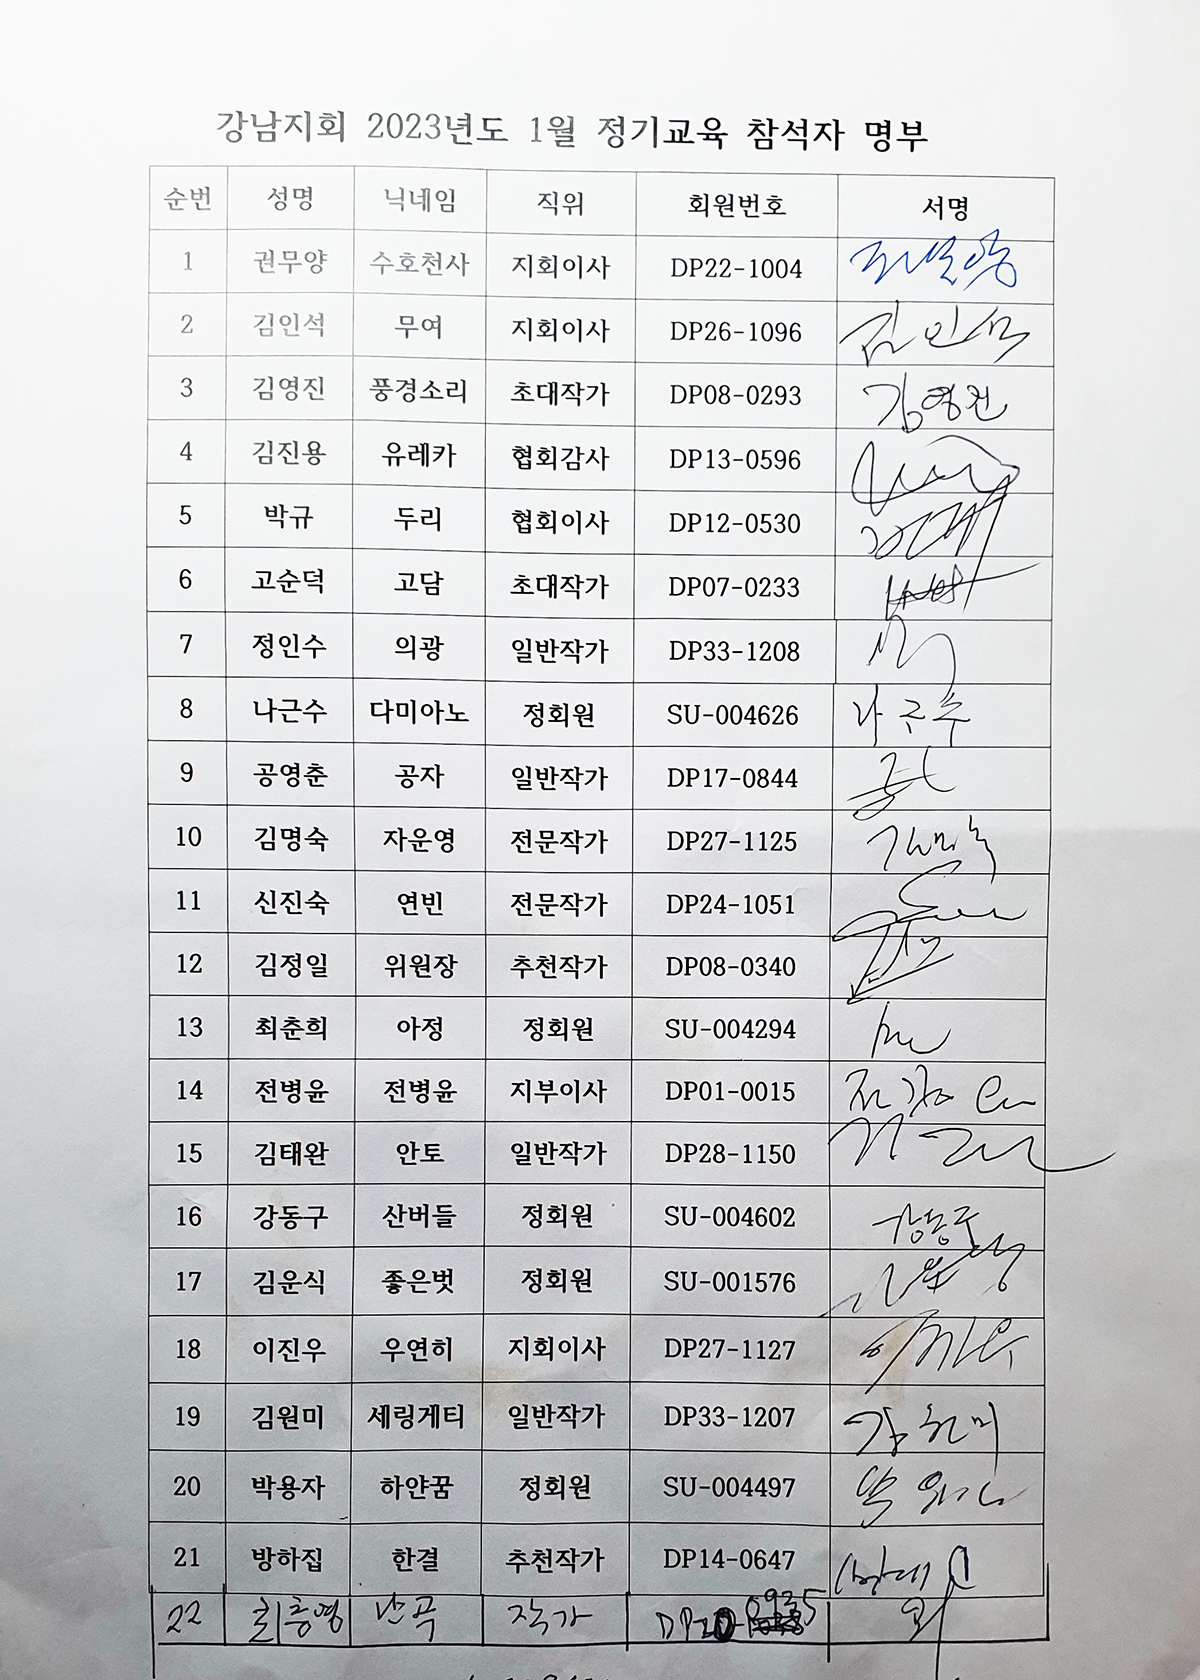 강남지회 2023년도 1월 정기교육 참석자 명부
순번 성명 닉네임 직위 회원번호 서명
1 권무양 수호천사 지회이사 DP22-1004
2 김인석 무여 지회이사 DP26-1096 김인석
3 김영진 풍경소리 초대작가 DP08-0293 김영진
4 김진용 유레카 협회감사 DP13-0596
5 박규 두리 협회이사 DP12-0530
6 고순덕 고담 초대작가 DP07-0233
7 정인수 의광 일반작가 DP33-1208
8 나근수 다미아노 정회원 SU-004626 나근수
9 공영춘 공자 일반작가 DP17-0844
10 김명숙 자운영 전문작가 DP27-1125 김명숙
11 신진숙 연빈 전문작가 DP24-1051
12 김정일 위원장 추천작가 DP08-0340
13 최춘희 아정 정회원 SU-004294
14 전병윤 전병윤 지부이사 DP01-0015
15 김태완 안토 일반작가 DP28-1150
16 강동구 산버들 정회원 SU-004602 강동구
17 김운식 좋은벗 정회원 SU-001576
18 이진우 우연히 지회이사 DP27-1127 이진우
19 김원미 세링게티 일반작가 DP33-1207 김원미
20 박용자 하얀꿈 정회원 SU-004497
21 방하집 한결 추천작가 DP14-0647
22 최층영 난곡 작가 DP20-0935